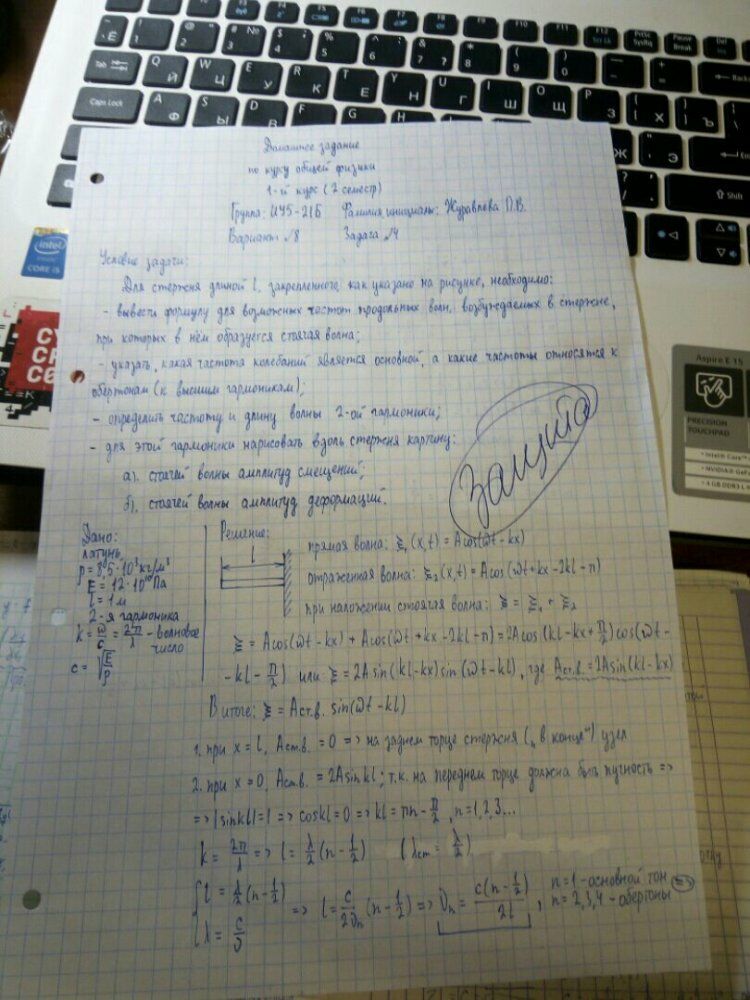 Домашнее задание
по курсу общей физики
1-й курс (2 семестр)
Группа: ИУ5-21Б Фамилия, инициалы: Журавлева П.В.
Вариант №8 Задача №4
Условие задачи:
Для стержня длиной l, закрепленного как указано на рисунке, необходимо:
- вывести формулу для возможных частот продольных волн, возбуждаемых в стержне,
при которых в нём образуется стоячая волна;
- указать, какая частота колебаний является основной, а какие частоты относятся к
обертонам (к высшим гармоникам);
- определить частоту и длину волны 2-ой гармоники;
- для этой гармоники нарисовать вдоль стержня картину:
а). стоячей волны амплитуд смещений;
б). стоячей волны амплитуд деформаций.
Защита
Дано:
латунь
ρ = 8,5·10³ кг/м³
E = 12·10¹⁰ Па
l = 1 м
2-я гармоника
k = ω/c = 2π/λ - волновое
число
c = √(E/ρ)
Решение:
l
прямая волна: ξ₁(x,t) = Acos(ωt-kx)
отраженная волна: ξ₂(x,t) = Acos(ωt+kx-2kl-π)
при наложении стоячая волна: ξ = ξ₁ + ξ₂
ξ = Acos(ωt-kx) + Acos(ωt+kx-2kl-π) = 2Acos(kl-kx+π/2)cos(ωt-
-kl-π/2) или ξ = 2Asin(kl-kx)sin(ωt-kl), где Aст.в. = 2Asin(kl-kx)
В итоге: ξ = Aст.в. sin(ωt-kl)
1. при x = l, Aст.в. = 0 => на заднем торце стержня („в конце") узел
2. при x=0, Aст.в. = 2Asinkl; т.к. на переднем торце должна быть пучность =>
=> |sinkl|=1 => coskl=0 => kl = πn - π/2, n=1,2,3...
k = 2π/λ => l = λ/2 (n-1/2) (λст = λ/2)
{ l = λ/2 (n-1/2)
λ = c/ν
=> l = c/2νn (n-1/2) => νn = c(n-1/2)/2l, n=1 - основной тон
n=2,3,4 - обертоны =>
intel
CORE i5
Aspire E 15
PRECISION
TOUCHPAD
Tab
Caps Lock
Pause
Break